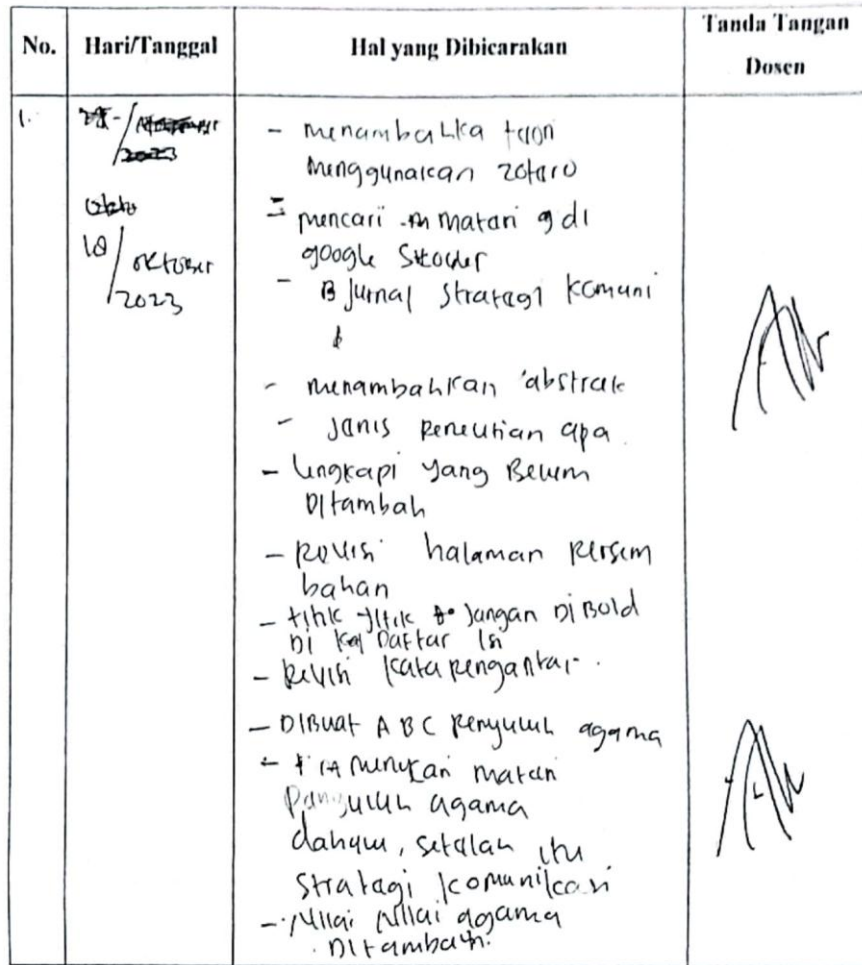 No. Hari/Tanggal Hal yang Dibicarakan Tanda Tangan
Dosen
1.
2023
18/oktober
2023
- menambahka teori
menggunakan zotero
- mencari materi di
google
- jurnal strategi komuni
- menambahkan abstrak
- jenis penelitian apa
- lengkapi yang Belum
Ditambah
- Revisi halaman persem
bahan
- titik titik jangan Di Bold
Di Daftar Isi
- Revisi kata pengantar.
- DiBuat A B C penyuluh agama
- materi
penyuluh agama
dahulu, setelah itu
strategi komunikasi
- Nilai nilai agama
Ditambah.